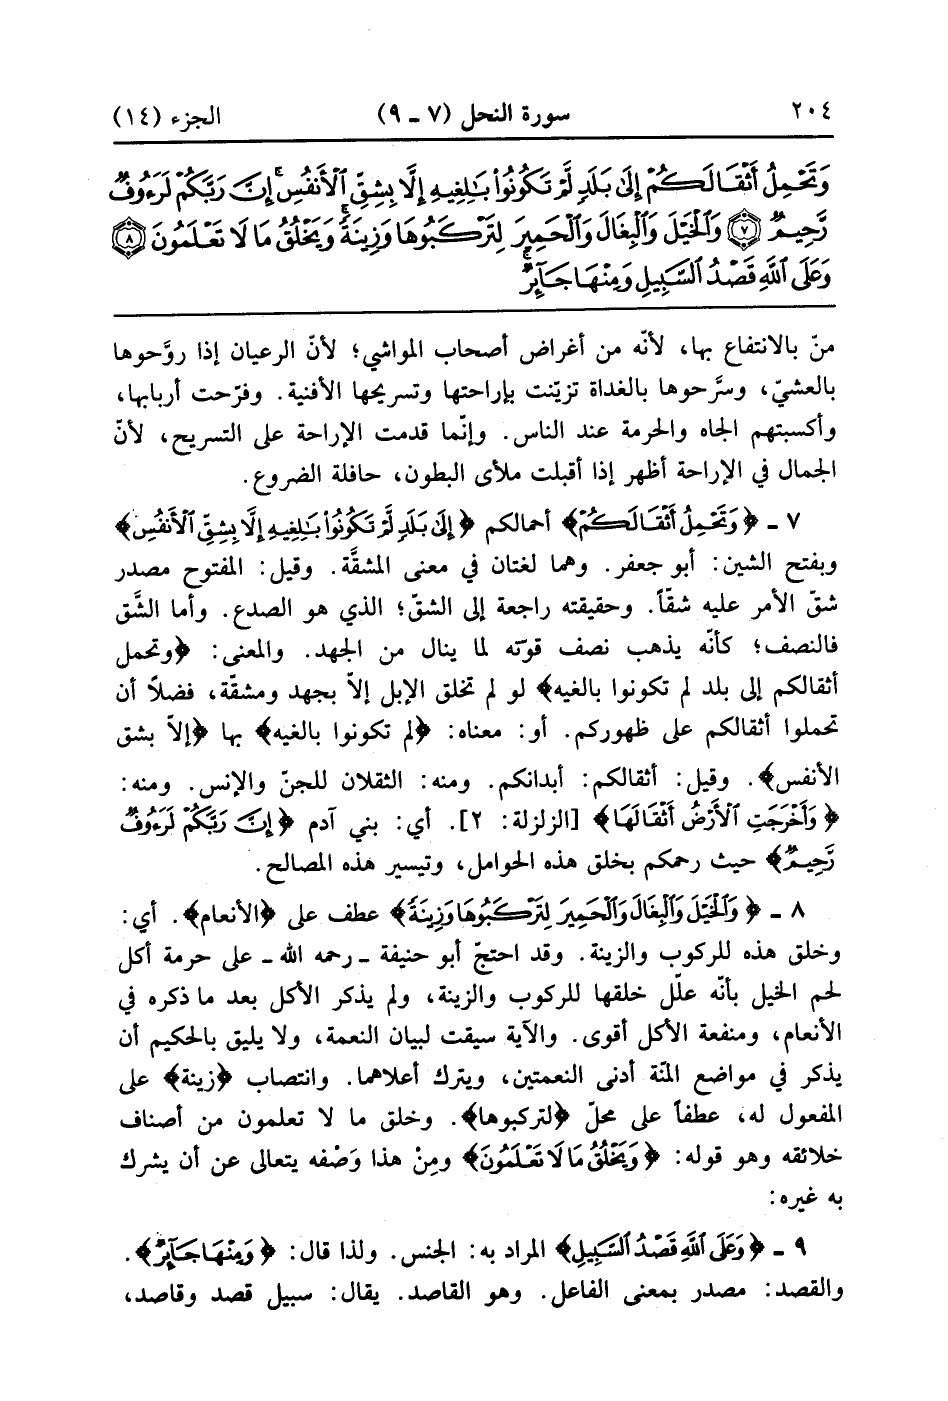 ٢٠٤ سورة النحل (٧ - ٩) الجزء (١٤)
وَتَحْمِلُ أَثْقَالَكُمْ إِلَىٰ بَلَدٍ لَّمْ تَكُونُوا۟ بَٰلِغِيهِ إِلَّا بِشِقِّ ٱلْأَنفُسِ ۚ إِنَّ رَبَّكُمْ لَرَءُوفٌ
رَّحِيمٌ ﴿٧﴾ وَٱلْخَيْلَ وَٱلْبِغَالَ وَٱلْحَمِيرَ لِتَرْكَبُوهَا وَزِينَةً ۚ وَيَخْلُقُ مَا لَا تَعْلَمُونَ ﴿٨﴾
وَعَلَى ٱللَّهِ قَصْدُ ٱلسَّبِيلِ وَمِنْهَا جَآئِرٌ ۚ
منّ بالانتفاع بها، لأنّه من أغراض أصحاب المواشي؛ لأنّ الرعيان إذا روَّحوها
بالعشيّ، وسرَّحوها بالغداة تزيّنت بإراحتها وتسريحها الأفنية. وفرّحت أربابها،
وأكسبتهم الجاه والحرمة عند الناس. وإنّما قدمت الإراحة على التسريح، لأنّ
الجمال في الإراحة أظهر إذا أقبلت ملأى البطون، حافلة الضروع.
٧ - ﴿وَتَحْمِلُ أَثْقَالَكُمْ﴾ أحمالكم ﴿إِلَىٰ بَلَدٍ لَّمْ تَكُونُوا۟ بَٰلِغِيهِ إِلَّا بِشِقِّ ٱلْأَنفُسِ﴾
وبفتح الشين: أبو جعفر. وهما لغتان في معنى المشقَّة. وقيل: المفتوح مصدر
شقّ الأمر عليه شقّاً. وحقيقته راجعة إلى الشقّ؛ الذي هو الصدع. وأما الشَّق
فالنصف؛ كأنّه يذهب نصف قوّته لما ينال من الجهد. والمعنى: ﴿وتحمل
أثقالكم إلى بلد لم تكونوا بالغيه﴾ لو لم تخلق الإبل إلاّ بجهد ومشقّة، فضلاً أن
تحملوا أثقالكم على ظهوركم. أو: معناه: ﴿لم تكونوا بالغيه﴾ بها ﴿إلاّ بشق
الأنفس﴾. وقيل: أثقالكم: أبدانكم. ومنه: الثقلان للجنّ والإنس. ومنه:
﴿وَأَخْرَجَتِ ٱلْأَرْضُ أَثْقَالَهَا﴾ [الزلزلة: ٢]. أي: بني آدم ﴿إِنَّ رَبَّكُمْ لَرَءُوفٌ
رَّحِيمٌ﴾ حيث رحمكم بخلق هذه الحوامل، وتيسير هذه المصالح.
٨ - ﴿وَٱلْخَيْلَ وَٱلْبِغَالَ وَٱلْحَمِيرَ لِتَرْكَبُوهَا وَزِينَةً﴾ عطف على ﴿الأنعام﴾. أي:
وخلق هذه للركوب والزينة. وقد احتجّ أبو حنيفة - رحمه الله - على حرمة أكل
لحم الخيل بأنّه علّل خلقها للركوب والزينة، ولم يذكر الأكل بعد ما ذكره في
الأنعام، ومنفعة الأكل أقوى. والآية سيقت لبيان النعمة، ولا يليق بالحكيم أن
يذكر في مواضع المنّة أدنى النعمتين، ويترك أعلاهما. وانتصاب ﴿زينة﴾ على
المفعول له، عطفاً على محلّ ﴿لتركبوها﴾. وخلق ما لا تعلمون من أصناف
خلائقه وهو قوله: ﴿وَيَخْلُقُ مَا لَا تَعْلَمُونَ﴾ ومِنْ هذا وَصْفه يتعالى عن أن يشرك
به غيره:
٩ - ﴿وَعَلَى ٱللَّهِ قَصْدُ ٱلسَّبِيلِ﴾ المراد به: الجنس. ولذا قال: ﴿وَمِنْهَا جَآئِرٌ﴾.
والقصد: مصدر بمعنى الفاعل. وهو القاصد. يقال: سبيل قصد وقاصد،